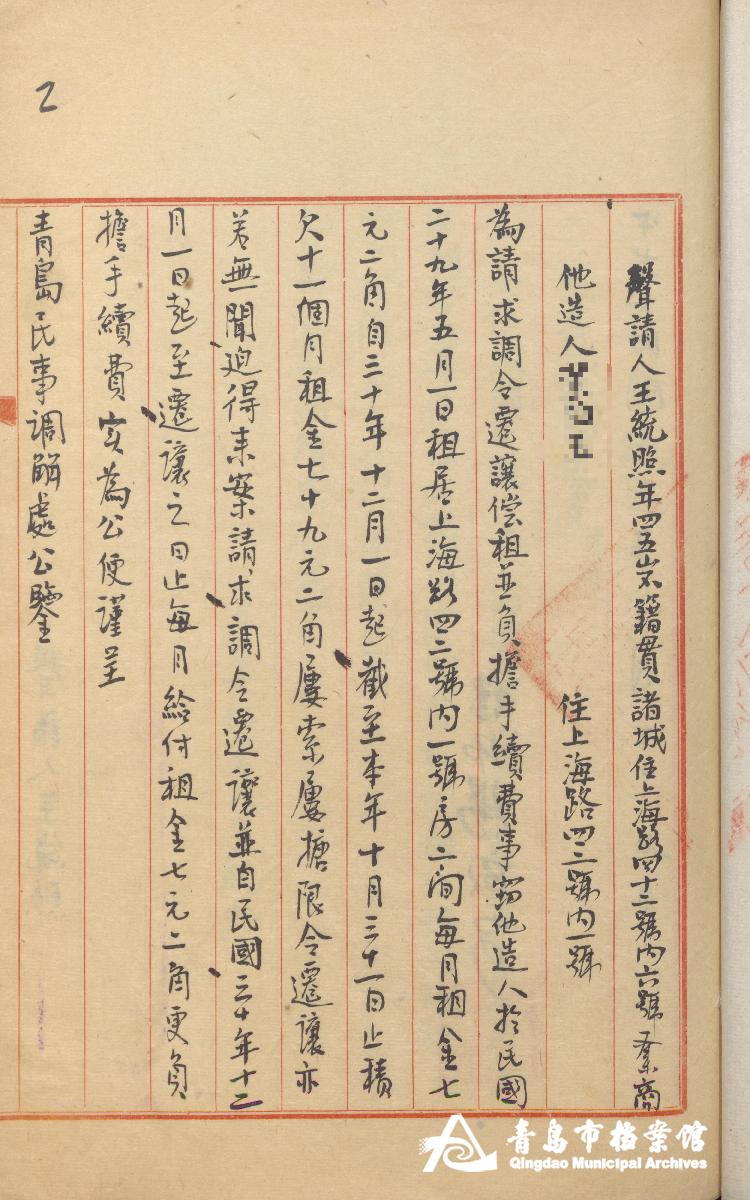 2
聲請人王統照年四五岁籍貫諸城住上海路四十二號內六號業商
他造人 住上海路四二號內一號
為請求調令遷讓償租並負擔手續費事竊他造人於民國
二十九年五月一日租居上海路四二號內一號房二间每月租金七
元二角自三十年十二月一日起截至本年十月三十一日止積
欠十一個月租金七十九元二角屢索屢搪限令遷讓亦
若無聞迫得来案請求調令遷讓並自民國三十年十二
月一日起至遷讓之日止每月給付租金七元二角更負
擔手續費实為公便謹呈
青島民事調解處公鑒
青島市档案馆
Qingdao Municipal Archives